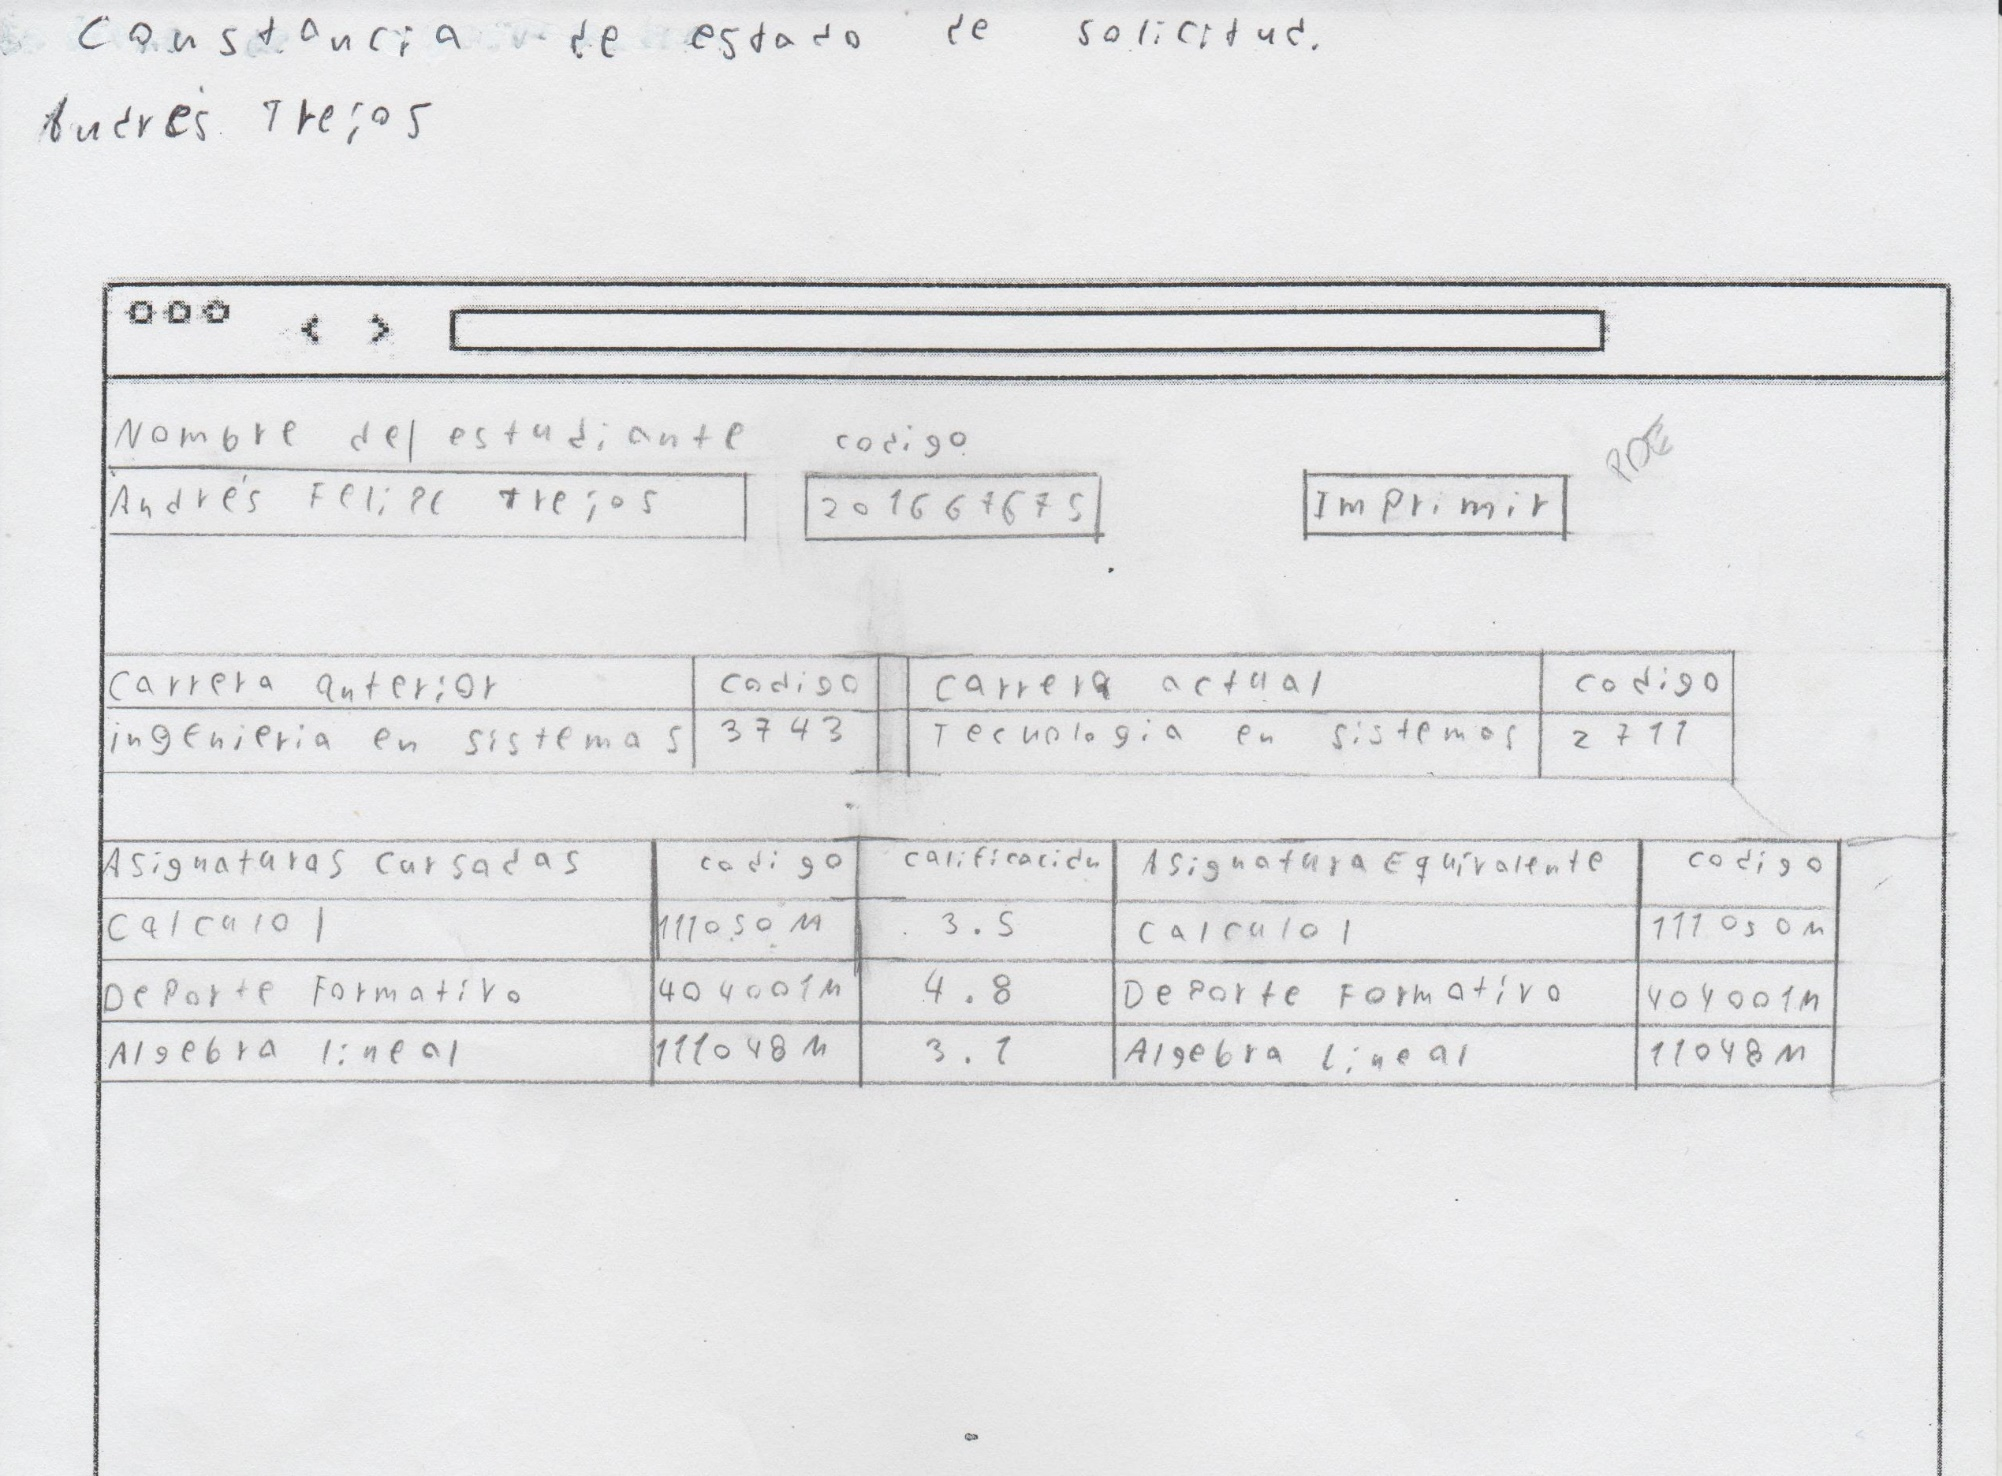 Constancia de estado de solicitud.
Andrés Trejos
Nombre del estudiante codigo
Andrés Felipe trejos 201667675 Imprimir
Carrera anterior codigo carrera actual codigo
ingenieria en sistemas 3743 Tecnologia en sistemas 2711
Asignaturas cursadas codigo calificación Asignatura Equivalente codigo
Calculo 1 111050M 3.5 Calculo 1 111050M
Deporte Formativo 404001M 4.8 Deporte Formativo 404001M
Algebra lineal 111048M 3.1 Algebra lineal 11048M